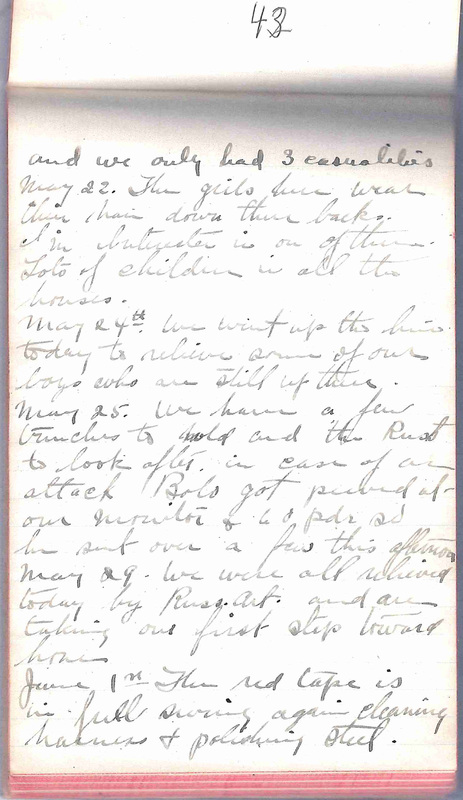 43
and we only had 3 casualities
May 22. The girls here wear
their hair down their backs.
I'm interested in on of them.
Lots of children in all the
houses.
May 24th. We went up the line
today to relieve some of our
boys who are still up there.
May 25. We have a few
trenches to hold and the Russ
to look after. in case of an
attack Bolo got peeved at
our monitor & 60 pdr so
he sent over a few this afternoon
May 29. We were all relieved
today by Russ. Art. and are
taking our first step toward
home
June 1st The red tape is
in full swing again cleaning
harness & polishing steel.